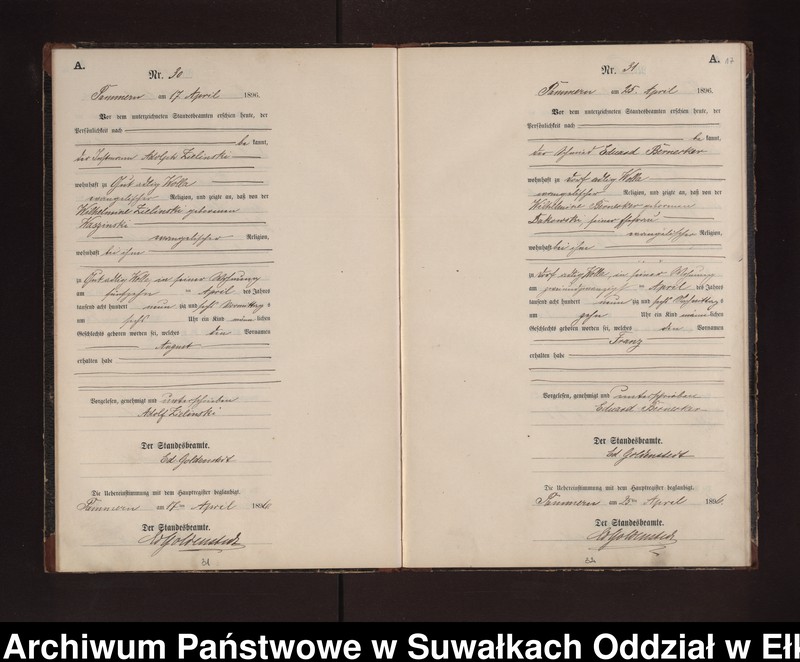 A.
Nr. 30
am 17 April 1896.
Vor dem unterzeichneten Standesbeamten erschien heute, der
Persönlichkeit nach
be kannt,
der Adolph Zielinski
wohnhaft zu Gut adlig
evangelischer Religion, und zeigte an, daß von der
Wilhelmine Zielinski geborenen
evangelischer Religion,
wohnhaft bei ihm
zu Gut adlig in seiner Wohnung
am fünfzehn ten April des Jahres
tausend acht hundert neun zig und sechs Vormittags
um sechs Uhr ein Kind männlichen
Geschlechts geboren worden sei, welches den Vornamen
August
erhalten habe
Vorgelesen, genehmigt und unterschrieben
Adolf Zielinski
Der Standesbeamte.
Ed. Goldenstedt
Die Uebereinstimmung mit dem Hauptregister beglaubigt.
am 17ten April 1896.
Der Standesbeamte.
Ed Goldenstedt
31
A.
Nr. 31
am 25. April 1896.
Vor dem unterzeichneten Standesbeamten erschien heute, der
Persönlichkeit nach
be kannt,
der Schmied Eduard
wohnhaft zu Dorf adlig
evangelischer Religion, und zeigte an, daß von der
Wilhelmine geborenen
seiner Ehefrau
evangelischer Religion,
wohnhaft bei ihm
zu Dorf adlig in seiner Wohnung
am April des Jahres
tausend acht hundert neun zig und sechs Nachmittags
um zehn Uhr ein Kind männlichen
Geschlechts geboren worden sei, welches den Vornamen
Franz
erhalten habe
Vorgelesen, genehmigt und unterschrieben
Eduard
Der Standesbeamte.
Ed. Goldenstedt
Die Uebereinstimmung mit dem Hauptregister beglaubigt.
am 25ten April 1896.
Der Standesbeamte.
Ed Goldenstedt
32
Archiwum Państwowe w Suwałkach Oddział w Ełk